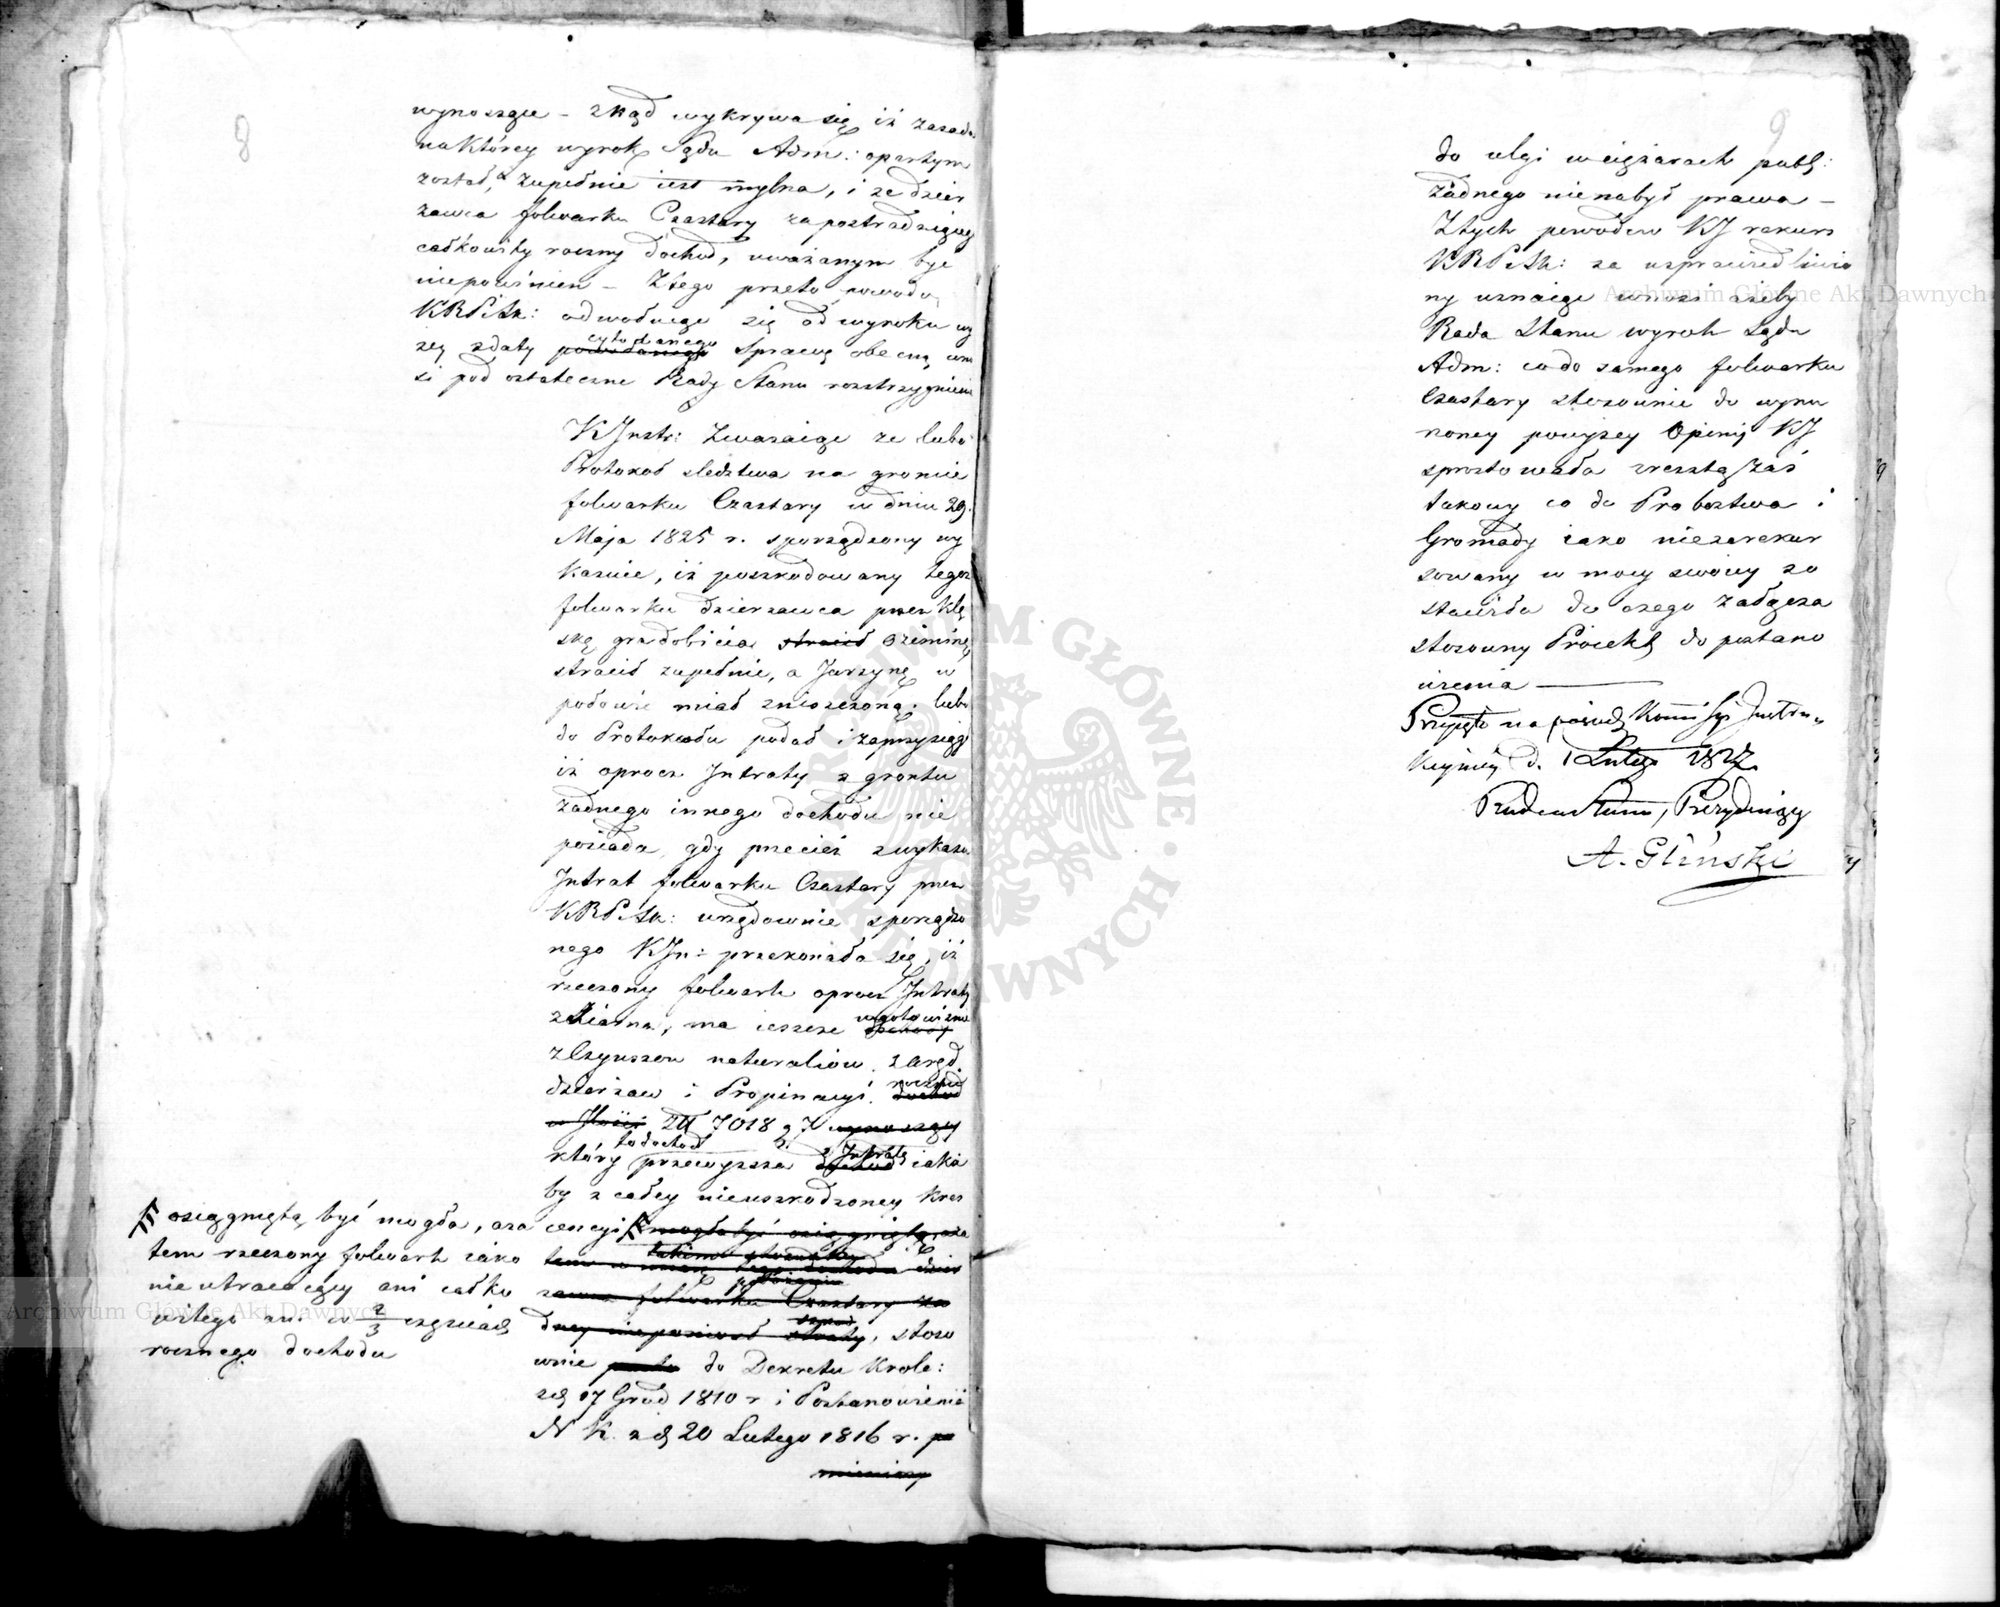 8
wynoszące – zkąd wykrywa się iż zasada
na którey wyrok Sądu Adm: opartym
został, zupełnie iest mylna, i że dzier
żawca folwarku Czastary za postradaiący
całkowity roczny dochod, uważanym być
niepowinien – Z tego przeto powodu
KRPiSk: odwołuiąc się od wyroku wy
cytowanego
żey zdaty powołanego Sprawę obecną wno
si pod ostateczne Rady Stanu rozstrzygnienie
K Instr: Zważaiąc że lubo
Protokoł sledztwa na gruncie
folwarku Czastary w dniu 29.
Maja 1825 r. sporządzony wy
kazuie, iż poszkodowany tegoż
folwarku dzierżawca przez klę
skę gradobicia stracił Oziminę
stracił zupełnie, a Jarzynę w
połowie miał zniszczoną. lubo
do Protokołu podał i zaprzysiągł
iż oprocz Intraty z gruntu
żadnego innego dochodu nie
posiada, gdy przecież z wykazu
Intrat folwarku Czastary przez
KRPiSk: urzędownie sporządzo
nego K In: przekonała się, iż
rzeczony folwark oprocz Intraty
w gotowiznie
z Ziarna, ma ieszcze
z Czynszow naturaliow, z aręd.
roczny
dzierżaw i Propinacyi. dochod
w Ilości Zł 7018 g 7 wynoszący
to dochod z Intratę
który przewyższa dochod iaka
by z całey nieuszkodzoney kres
cencyi mogła być osiągnięta, aza
tem dzier
żawca folwarku Czastary ża
dney nieponiosł straty, stoso
wnie przeto do Dekretu Krole:
z d 17 Grud 1810 r i Postanowienia
N K. z d 20 Lutego 1816 r. po
mieniony
osiągniętą być mogła, aza
tem rzeczony folwark iako
nie utracaiący ani całko
witego ani w 2/3 częściach
rocznego dochodu
9
do ulgi w ciężarach publ:
żadnego nienabył prawa –
Z tych powodow KJ rekurs
KRPiSk: za usprawiedliwio
ny uznaiąc wnosi ażeby
Rada Stanu wyrok Sądu
Adm: co do samego folwarku
Czastary stosownie do wynu
rzoney powyżey Opinij KJ
sprostowała zresztą zaś
takowy co do Probostwa i
Gromady iako niezarekur
sowany w mocy swoiey zo
stawiła do czego załącza
stosowny Proiekt do postano
wienia
Przyięto na posiedz Kommissyi Instru-
kcyiney d. 1 Lutego 1827.
Radca Stanu, Prezyduiący
A. Gliński
Archiwum Główne Akt Dawnych
Archiwum Główne Akt Dawnych
ARCHIWUM GŁÓWNE AKT DAWNYCH